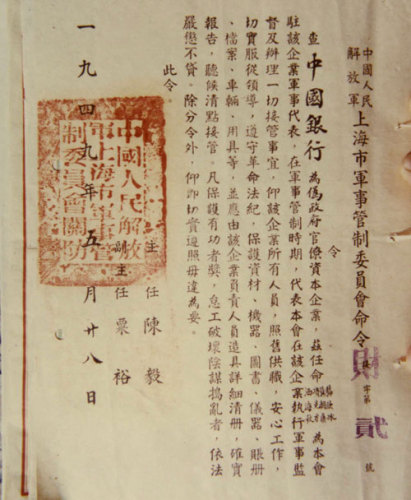 中國人民
解放軍
上海市軍事管制委員會命令
財字第貳號
令
查中國銀行為偽政府官僚資本企業，茲任命
為本會
駐該企業軍事代表，在軍事管制時期，代表本會在該企業執行軍事監
督及辦理一切接管事宜，仰該企業所有人員，照舊供職，安心工作，
切實服從領導，遵守革命法紀，保護資材、機器、圖書、儀器、賬冊
、檔案、車輛、用具等，並應由該企業負責人員造具詳細清冊，確實
報告，聽候清點接管。凡保護有功者獎，怠工破壞陰謀搗亂者，依法
嚴懲不貸。除分令外，仰即切實遵照毋違為要。
此令。
主任陳毅
副主任粟裕
一九四九年五月廿八日
中國人民解放
軍上海市軍事管
制委員會關防